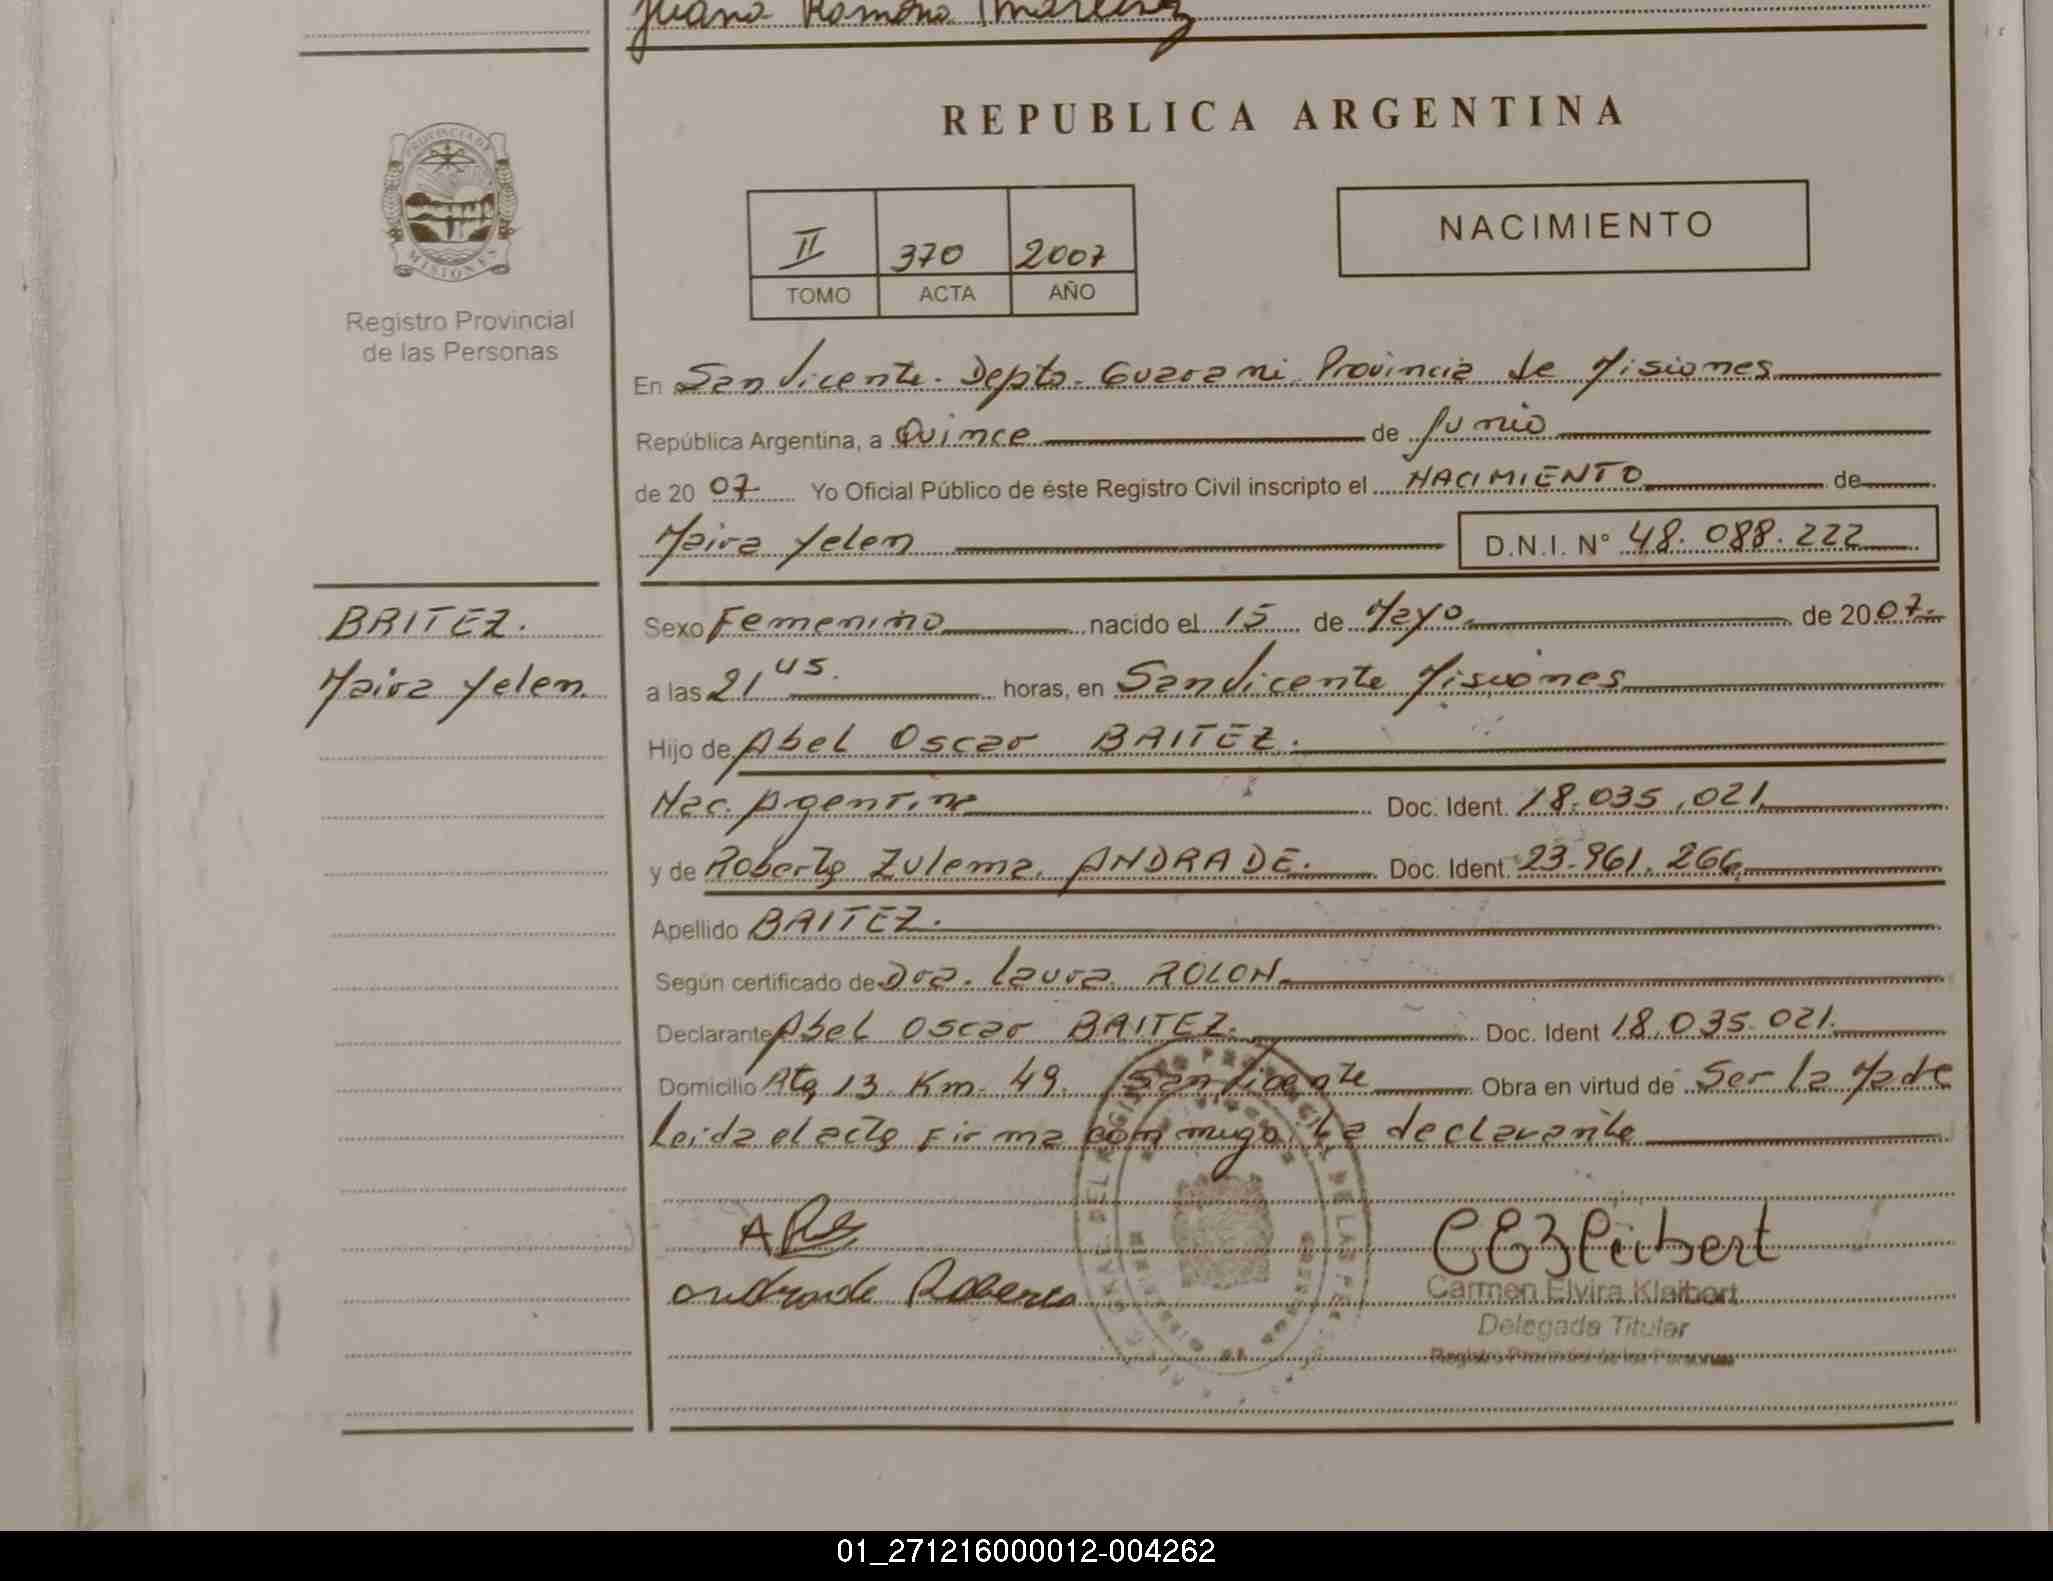 Juana Ramona Martinez
REPUBLICA ARGENTINA
PROVINCIA DE MISIONES
Registro Provincial
de las Personas
II 370 2007
TOMO ACTA AÑO
NACIMIENTO
En San Vicente. Depto. Guarani. Provincia de Misiones
República Argentina, a Quince de Junio
de 2007 Yo Oficial Público de éste Registro Civil inscripto el NACIMIENTO de
Maira Yelen D.N.I. N° 48.088.222
BAITEZ.
Maira Yelen
Sexo Femenino nacido el 15 de Mayo de 2007.
a las 21 45. horas, en San Vicente Misiones
Hijo de Abel Oscar BAITEZ.
Nac. Argentina Doc. Ident. 18.035.021
y de Roberta Zulema. ANDRADE. Doc. Ident. 23.961.266
Apellido BAITEZ.
Según certificado de Dra. Laura ROLON
Declarante Abel Oscar BAITEZ. Doc. Ident 18.035.021.
Domicilio Rta 13 Km. 49. San Vicente Obra en virtud de Ser la Made
Leida el acta Firma conmigo La declarante
andrade Roberta
Carmen Elvira Klaibert
Delegada Titular
Registro Provincial de las Personas
01_271216000012-004262